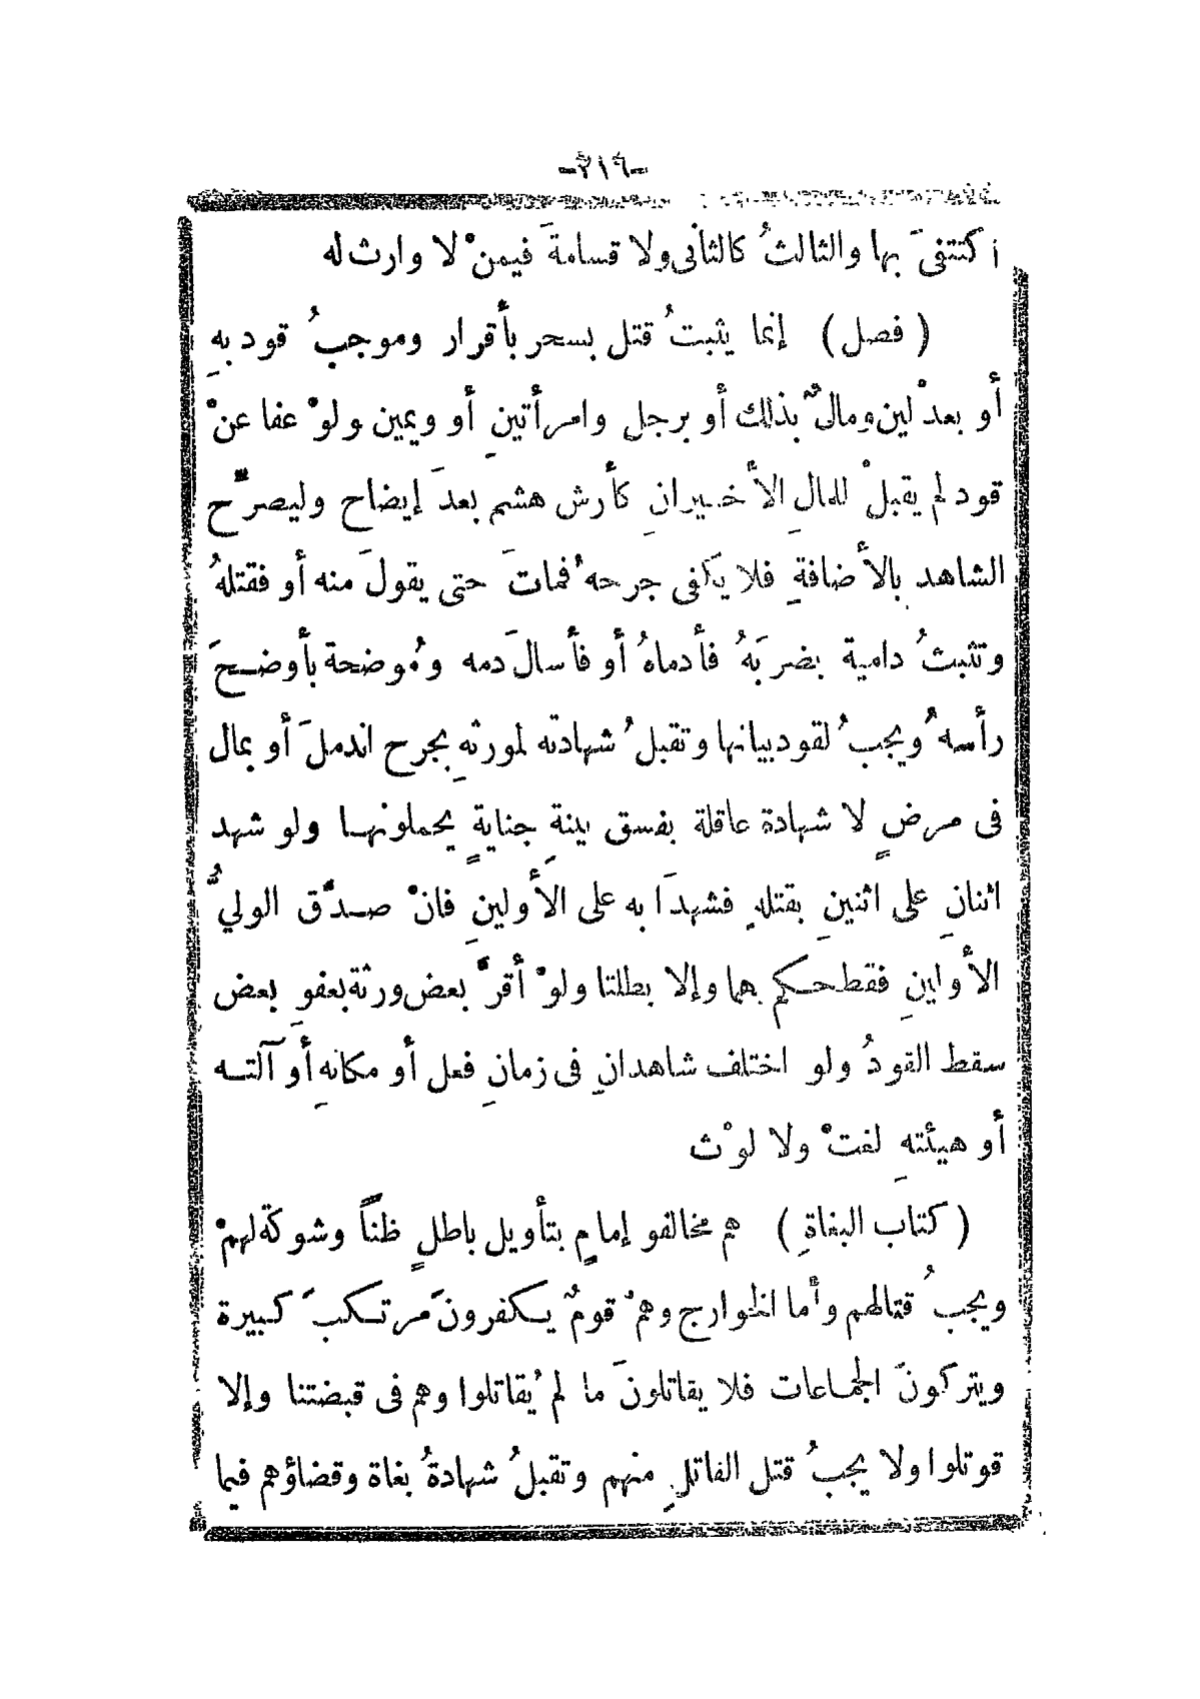 -٣١٦-
أكتتفىَ بها والثالثُ كالثانى ولا قسامةَ فيمنْ لا وارث له
( فصل ) إنما يثبتُ قتل بسحر بأقرار وموجبُ قود بهِ
أو بعدْلين ومالٌ بذلك أو برجل وامرأتينِ أو ويمين ولوْ عفا عنْ
قود لم يقبلْ للمالِ الأخـيرانِ كأرش هشم بعدَ إيضاح وليصرّح
الشاهد بالأضافةِ فلا يكفى جرحهُ فماتَ حتى يقولَ منه أو فقتلهُ
وتثبتُ دامية بضربَهُ فأدماهُ أو فأسالَ دمه ومُوضحة بأوضـحَ
رأسهُ ويجبُ لقود بيانها وتقبلُ شهادته لمورثهِ بجرح اندملَ أو بمال
فى مرضٍ لا شهادة عاقلة بفسق بينةِ جنايةٍ يحملونهـا ولو شهد
اثنانِ على اثنينِ بقتلهِ فشهدَا به على الأولينِ فانْ صـدّق الوليُّ
الأولينِ فقط حكم بهما وإلا بطلتا ولوْ أقرَّ بعض ورثة بعفوِ بعض
سقط القودُ ولو اختلف شاهدانِ فى زمانِ فعل أو مكانهِ أو آلتـه
أو هيئتهِ لغتْ ولا لوْث
( كتاب البغاةِ ) هم مخالفو إمامٍ بتأويل باطلٍ ظناً وشوكة لهمْ
ويجبُ قتالهم وأما الخوارج وهمْ قومٌ يـكفرونَ مرتـكبَ كـبيرة
ويتركونَ الجماعات فلا يقاتلونَ ما لم يُقاتلوا وهم فى قبضتنا وإلا
قوتلوا ولا يجبُ قتل القاتلِ منهم وتقبلُ شهادةُ بغاة وقضاؤهم فيما